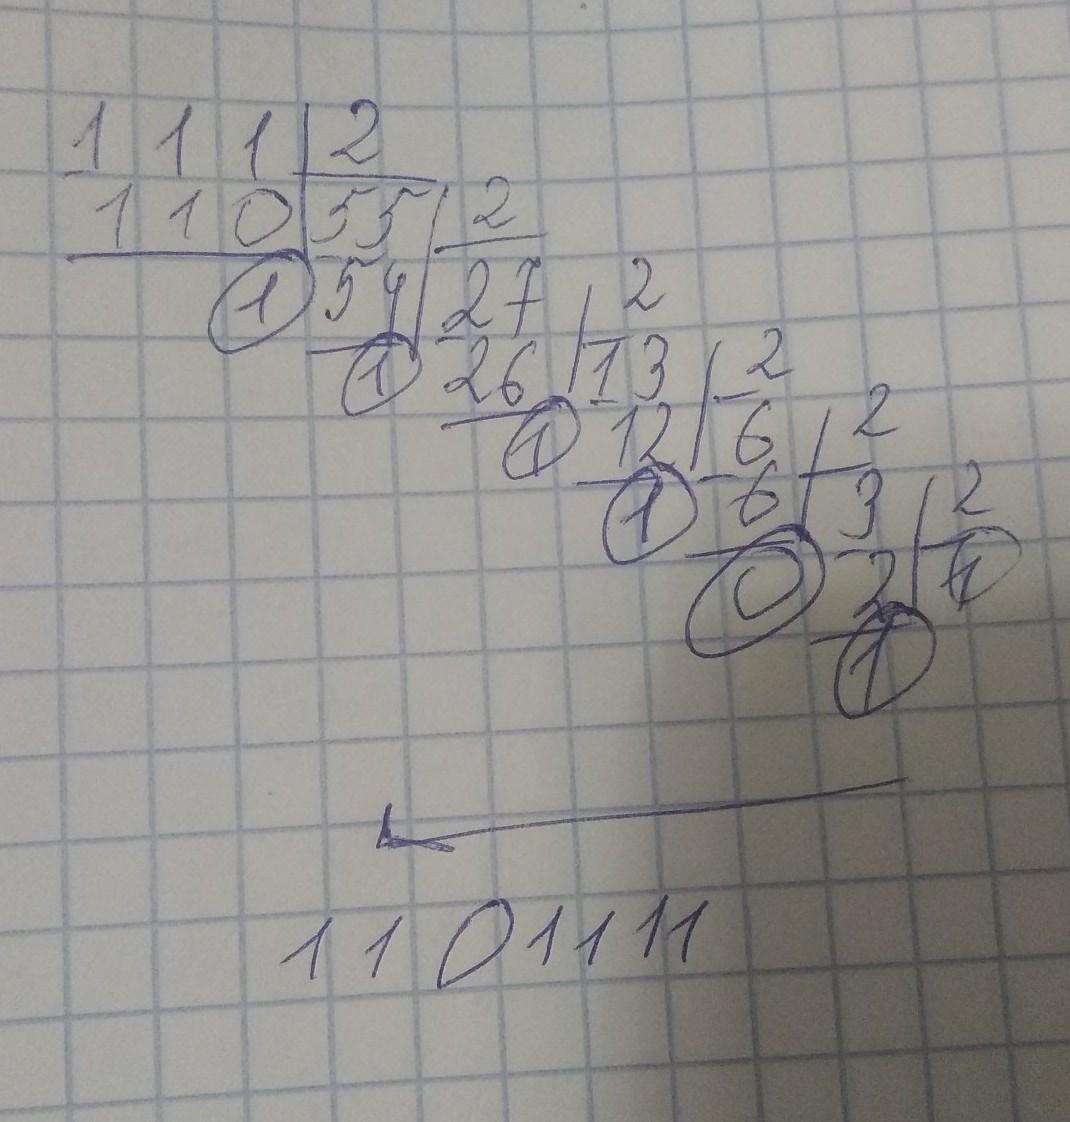 111 2
110 55 2
1 54 27 2
1 26 13 2
1 12 6 2
1 6 3 2
0 2 1
1
1101111